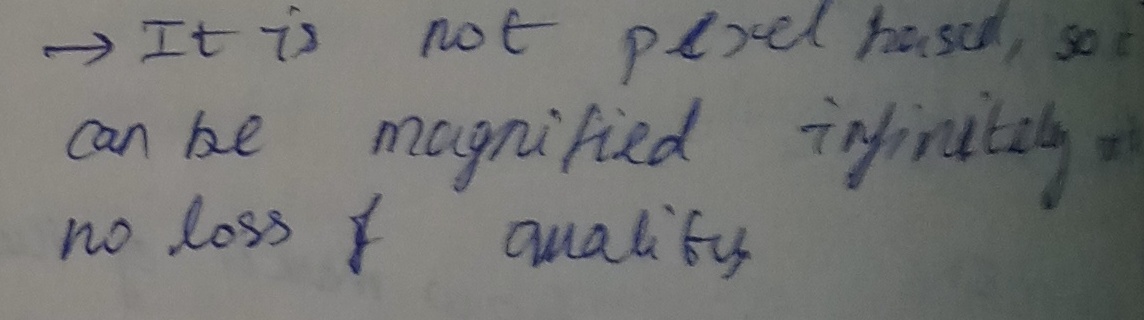 → It is not pixel based, so
can be magnified infinitely
no loss of quality